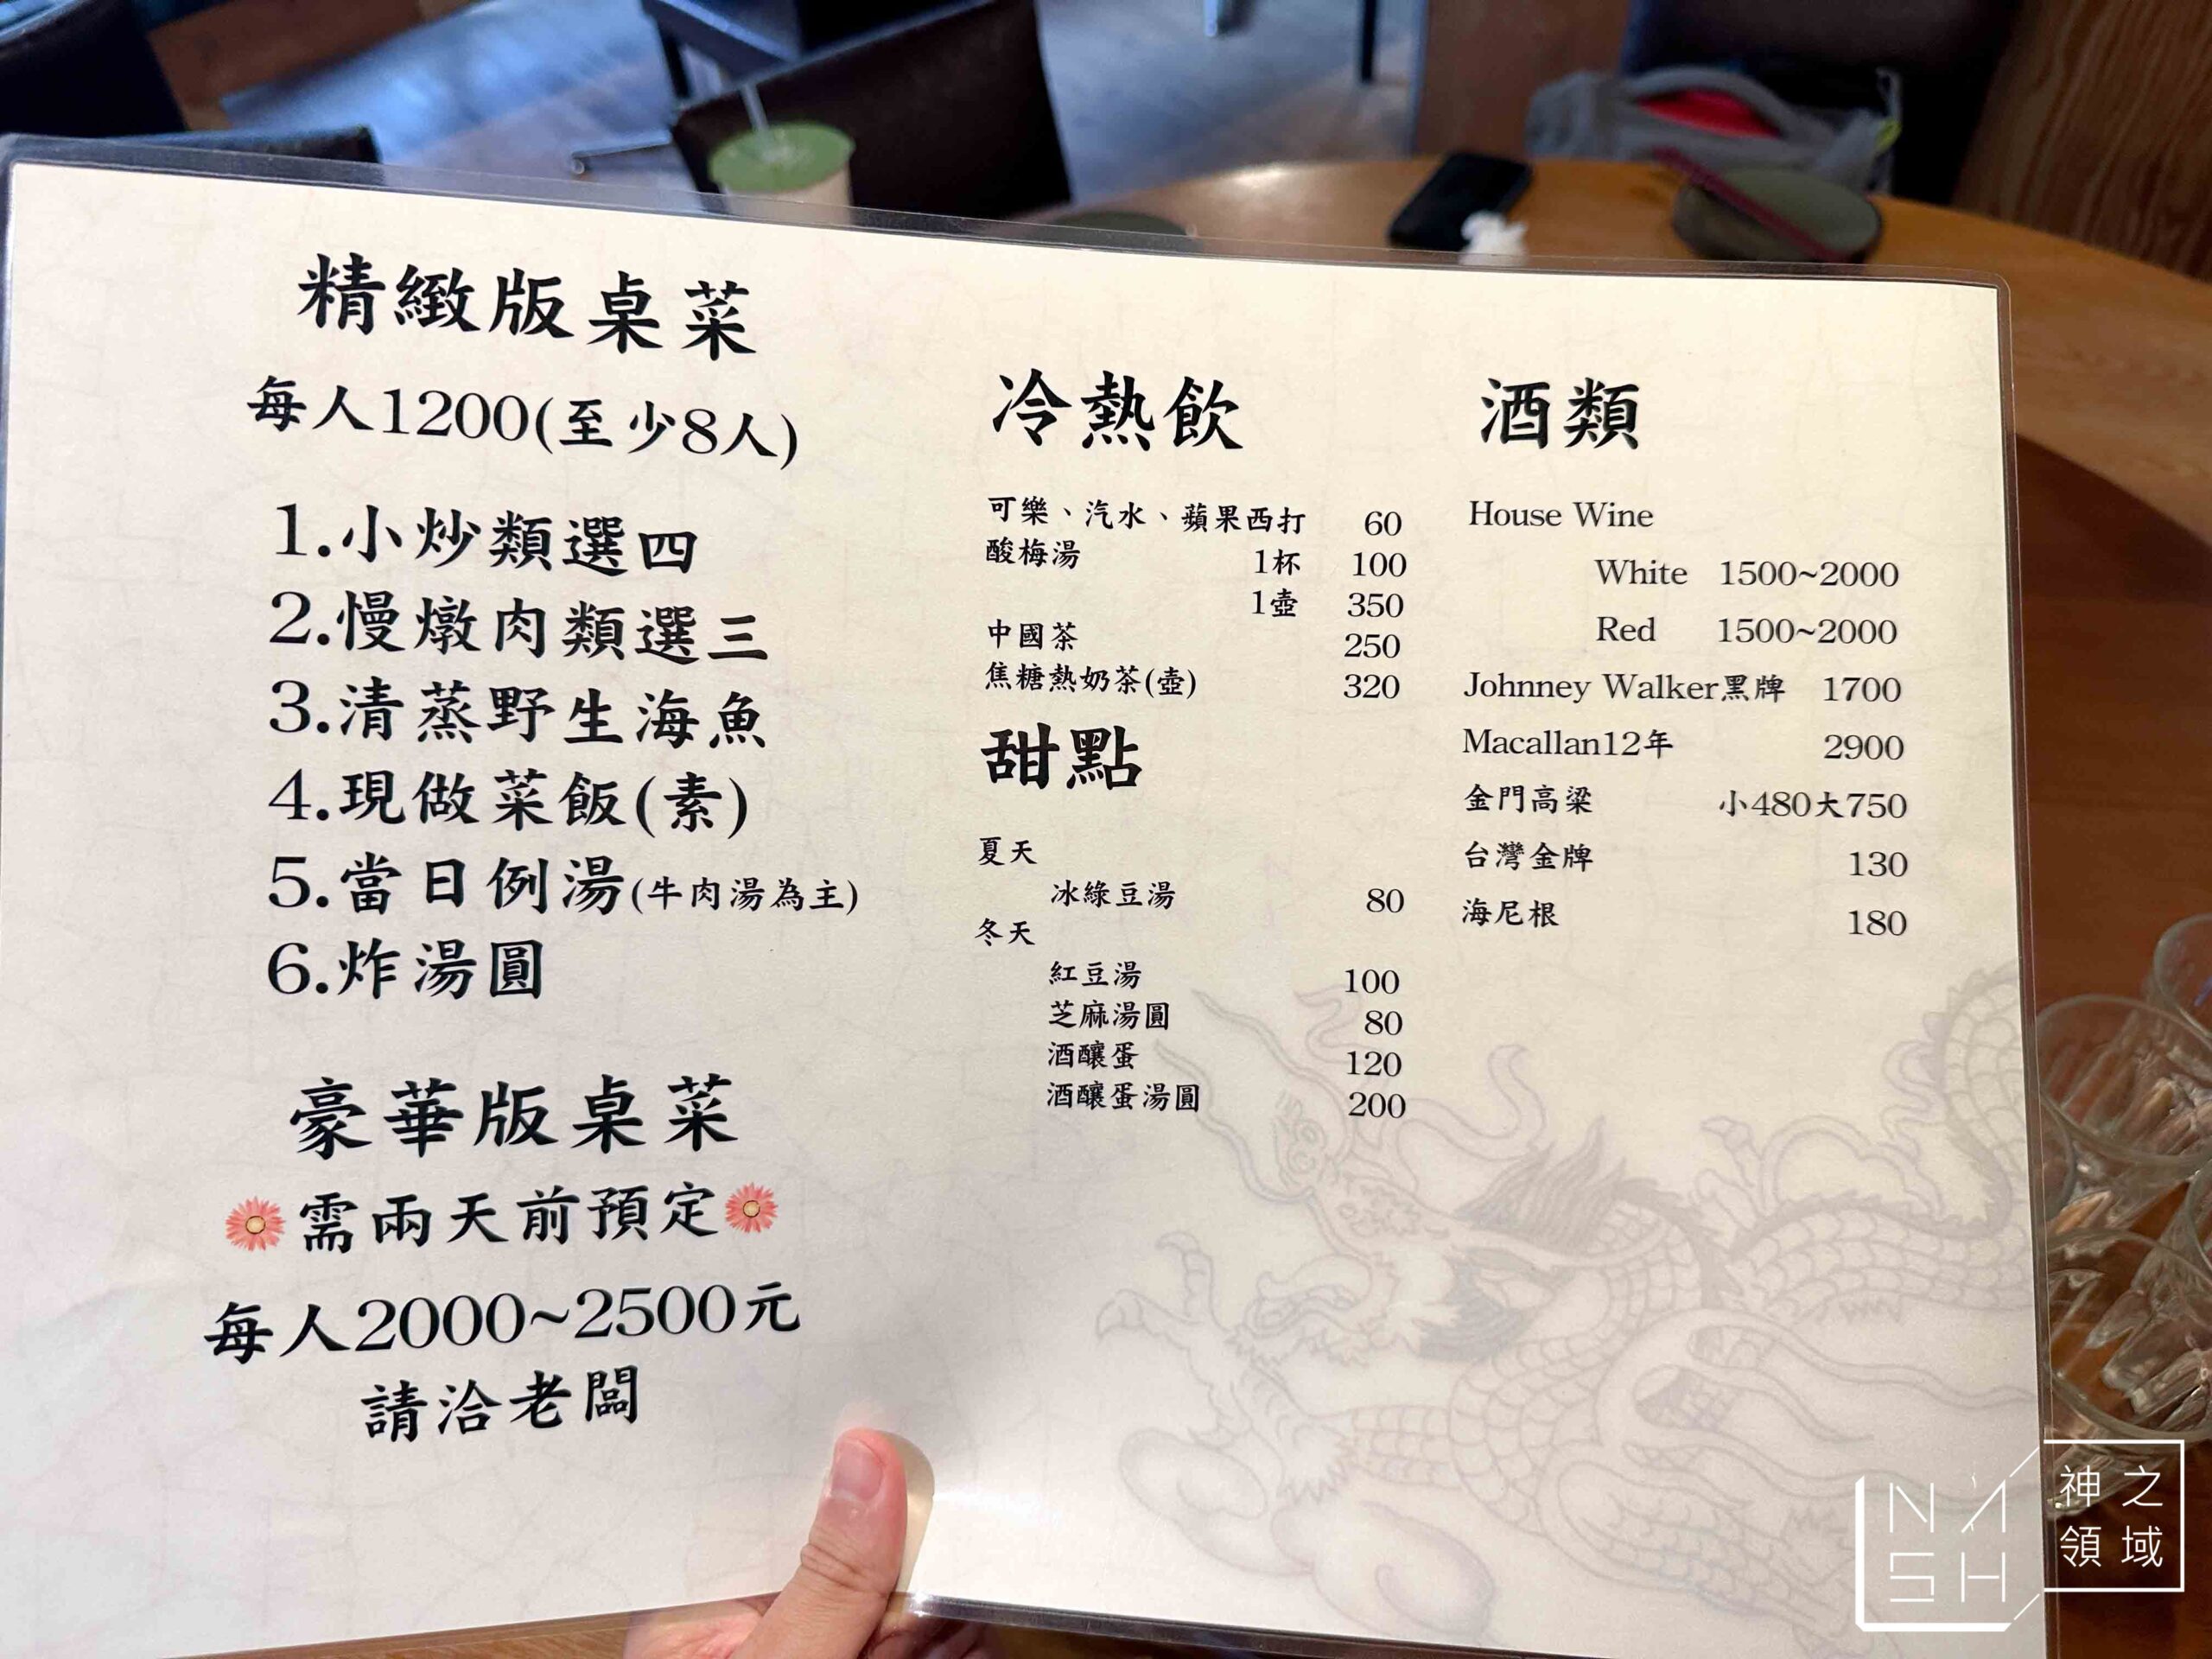 精緻版桌菜
每人1200(至少8人)
1.小炒類選四
2.慢燉肉類選三
3.清蒸野生海魚
4.現做菜飯(素)
5.當日例湯(牛肉湯為主)
6.炸湯圓
豪華版桌菜
需兩天前預定
每人2000~2500元
請洽老闆
冷熱飲
可樂、汽水、蘋果西打 60
酸梅湯 1杯 100
1壺 350
中國茶 250
焦糖熱奶茶(壺) 320
甜點
夏天
冰綠豆湯 80
冬天
紅豆湯 100
芝麻湯圓 80
酒釀蛋 120
酒釀蛋湯圓 200
酒類
House Wine
White 1500~2000
Red 1500~2000
Johnney Walker黑牌 1700
Macallan12年 2900
金門高粱 小480大750
台灣金牌 130
海尼根 180
NASH
神之
領域